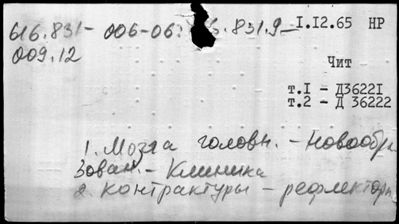 616.831-006-06: 616.851.9- 1.12.65 НР
009.12
Чит
т.1 - Д36221
т.2 - Д 36222
1. Мозга головн. - Новообра
зован. - Клиника
2. Контрактуры - рефлекторн